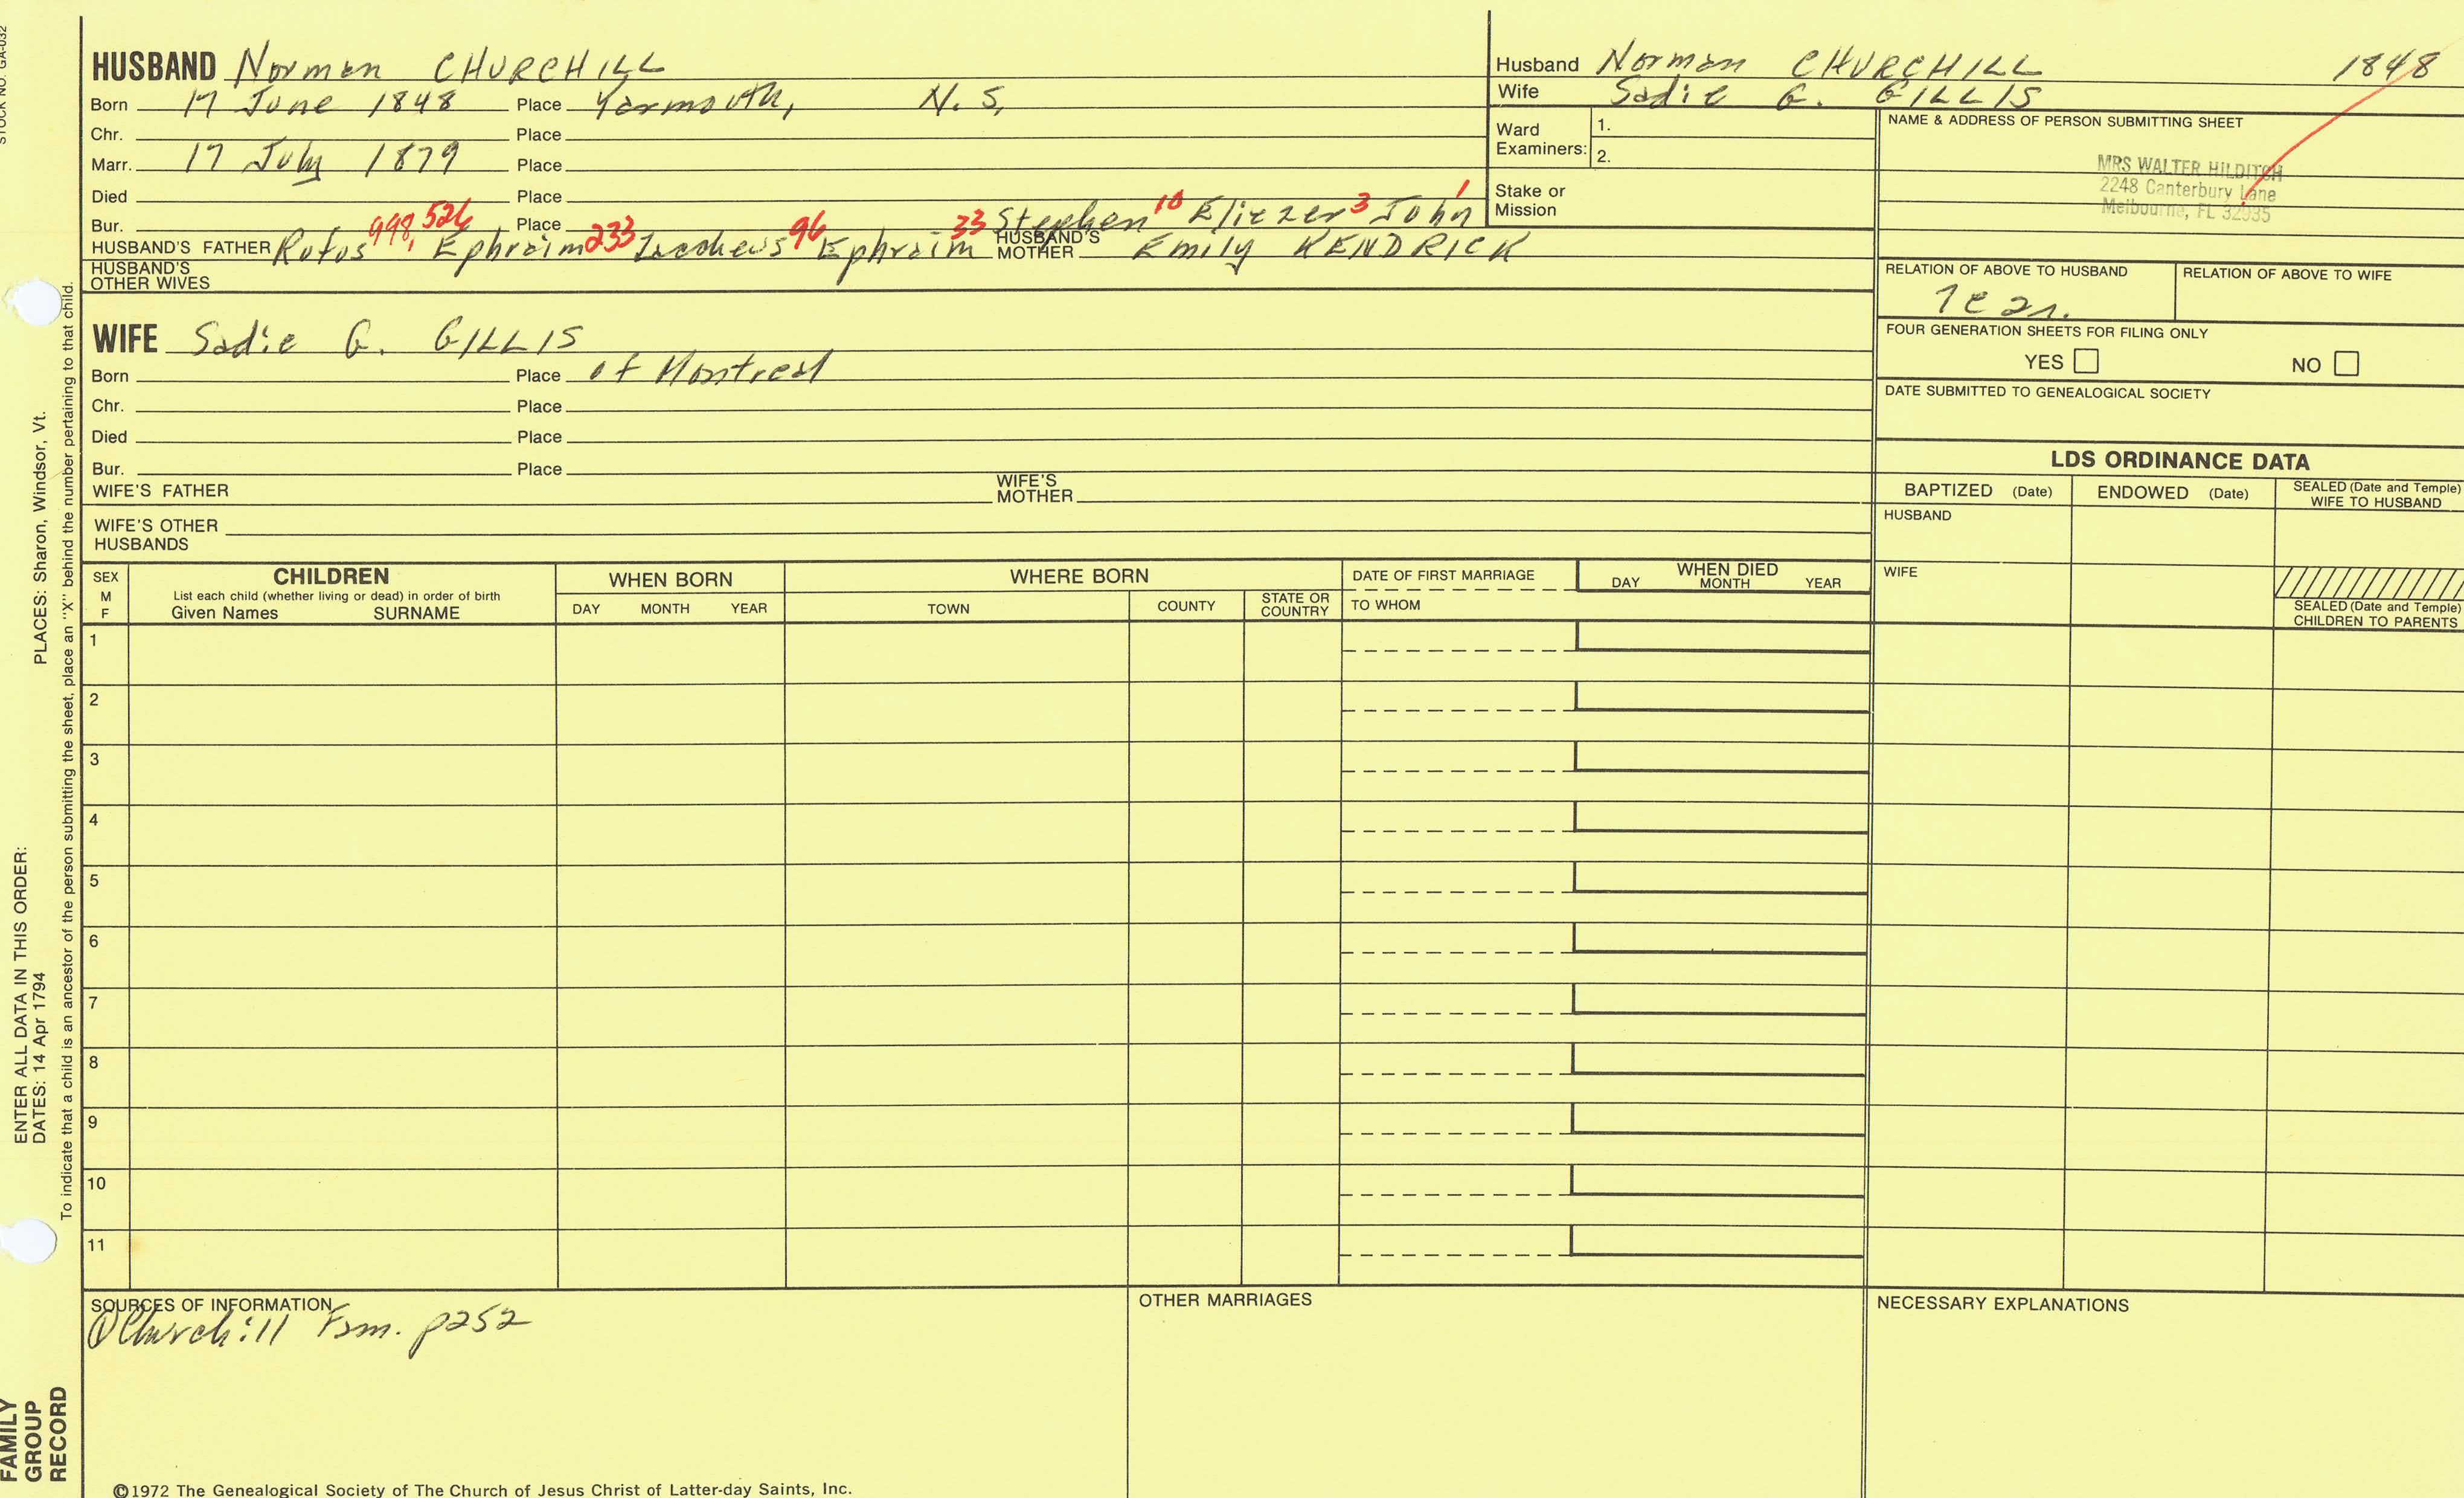 STOCK NO. GA-032
PLACES: Sharon, Windsor, Vt.
ENTER ALL DATA IN THIS ORDER:
DATES: 14 Apr 1794
To indicate that a child is an ancestor of the person submitting the sheet, place an "X" behind the number pertaining to that child.
FAMILY
GROUP
RECORD
HUSBAND Norman CHURCHILL
Born 17 June 1848 Place Yarmouth, N.S.
Chr. Place
Marr. 17 July 1879 Place
Died Place
Bur. Place
998, 526 233 96 33 Stephen 10 Eliezer 3 John 1
HUSBAND'S FATHER Rufus, Ephraim Zacheus Ephraim HUSBAND'S MOTHER Emily KENDRICK
HUSBAND'S
OTHER WIVES
WIFE Sadie G. GILLIS
Born Place of Montreal
Chr. Place
Died Place
Bur. Place
WIFE'S FATHER WIFE'S MOTHER
WIFE'S OTHER
HUSBANDS
Husband Norman CHURCHILL 1848
Wife Sadie G. GILLIS
Ward
Examiners: 1.
2.
Stake or
Mission
NAME & ADDRESS OF PERSON SUBMITTING SHEET
MRS WALTER HILDITCH
2248 Canterbury Lane
Melbourne, FL 32935
RELATION OF ABOVE TO HUSBAND RELATION OF ABOVE TO WIFE
FOUR GENERATION SHEETS FOR FILING ONLY
YES NO
DATE SUBMITTED TO GENEALOGICAL SOCIETY
LDS ORDINANCE DATA
BAPTIZED (Date) ENDOWED (Date) SEALED (Date and Temple)
WIFE TO HUSBAND
HUSBAND
WIFE
SEALED (Date and Temple)
CHILDREN TO PARENTS
SEX
M
F
CHILDREN
List each child (whether living or dead) in order of birth
Given Names SURNAME
WHEN BORN
DAY MONTH YEAR
WHERE BORN
TOWN COUNTY STATE OR
COUNTRY
DATE OF FIRST MARRIAGE
TO WHOM
WHEN DIED
DAY MONTH YEAR
1
2
3
4
5
6
7
8
9
10
11
SOURCES OF INFORMATION
Churchill Fam. p252
OTHER MARRIAGES
NECESSARY EXPLANATIONS
©1972 The Genealogical Society of The Church of Jesus Christ of Latter-day Saints, Inc.